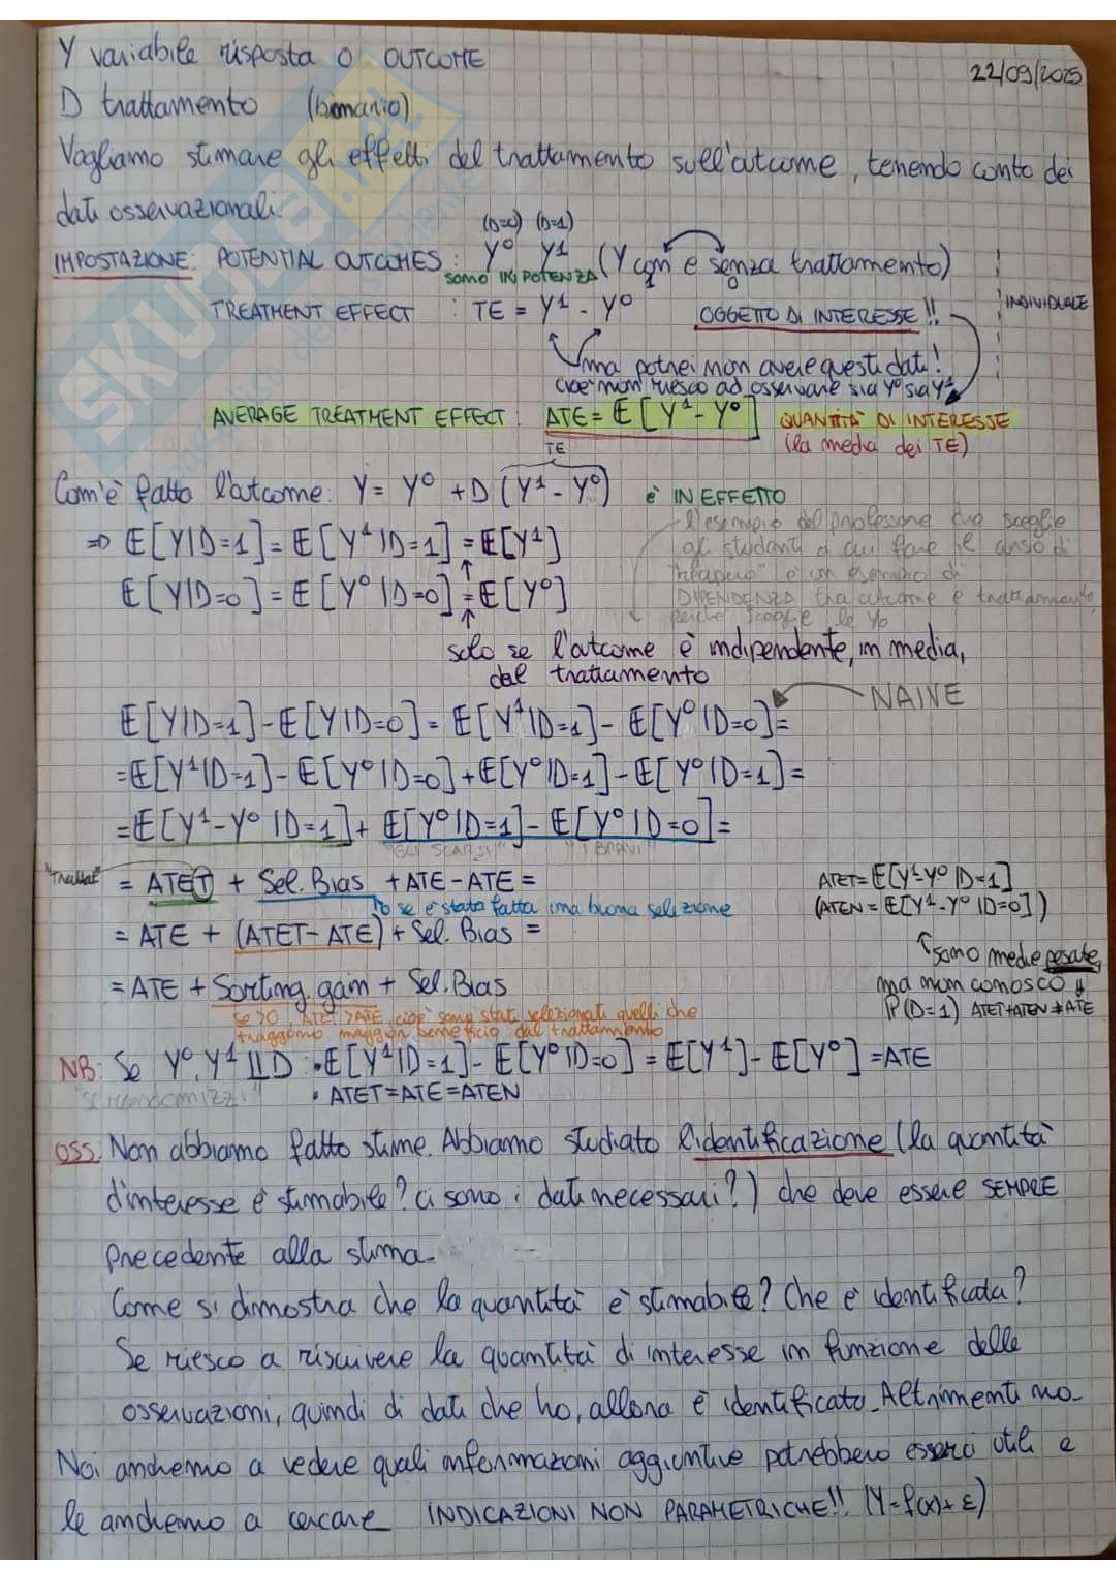 22/09/2025
Y variabile risposta o OUTCOME
D trattamento (binario)
Vogliamo stimare gli effetti del trattamento sull'outcome, tenendo conto dei
dati osservazionali.
(D=0) (D=1)
IMPOSTAZIONE: POTENTIAL OUTCOMES: Y⁰ Y¹ (Y con e senza trattamento)
SONO IN POTENZA 1 0
TREATMENT EFFECT : TE = Y¹ - Y⁰ OGGETTO DI INTERESSE!! INDIVIDUALE
ma potrei non avere questi dati!
cioè non riesco ad osservare sia Y⁰ sia Y¹
AVERAGE TREATMENT EFFECT: ATE = E[Y¹ - Y⁰] QUANTITÀ DI INTERESSE
(la media dei TE)
TE
Com'è fatto l'outcome: Y = Y⁰ + D(Y¹ - Y⁰) è IN EFFETTO
⇒ E[Y|D=1] = E[Y¹|D=1] = E[Y¹]
E[Y|D=0] = E[Y⁰|D=0] = E[Y⁰]
L'esempio del professore che sceglie
gli studenti a cui fare il corso di
"recupero" è un esempio di
DIPENDENZA tra outcome e trattamento,
perché sceglie le Y⁰
solo se l'outcome è indipendente, in media,
dal trattamento
E[Y|D=1] - E[Y|D=0] = E[Y¹|D=1] - E[Y⁰|D=0] = NAIVE
= E[Y¹|D=1] - E[Y⁰|D=0] + E[Y⁰|D=1] - E[Y⁰|D=1] =
= E[Y¹-Y⁰|D=1] + E[Y⁰|D=1] - E[Y⁰|D=0] =
"GLI SCARSI" "I BRAVI"
"Trattati"
= ATET + Sel. Bias + ATE - ATE =
0 se è stata fatta una buona selezione
= ATE + (ATET - ATE) + Sel. Bias =
= ATE + Sorting gain + Sel. Bias
se >0, ATET > ATE, cioè sono stati selezionati quelli che
traggono maggior beneficio dal trattamento
ATET = E[Y¹-Y⁰|D=1]
(ATEN = E[Y¹-Y⁰|D=0])
sono medie pesate,
ma non conosco
P(D=1) ATET+ATEN ≠ ATE
NB: Se Y⁰, Y¹ ⫫ D • E[Y¹|D=1] - E[Y⁰|D=0] = E[Y¹] - E[Y⁰] = ATE
• ATET = ATE = ATEN
OSS. Non abbiamo fatto stime. Abbiamo studiato l'identificazione (la quantità
d'interesse è stimabile? ci sono i dati necessari?) che deve essere SEMPRE
precedente alla stima.
Come si dimostra che la quantità è stimabile? Che è identificata?
Se riesco a riscrivere la quantità di interesse in funzione delle
osservazioni, quindi di dati che ho, allora è identificato. Altrimenti no.
Noi andremo a vedere quali informazioni aggiuntive potrebbero esserci utili e
le andremo a cercare INDICAZIONI NON PARAMETRICHE!! (Y = f(x) + ε)